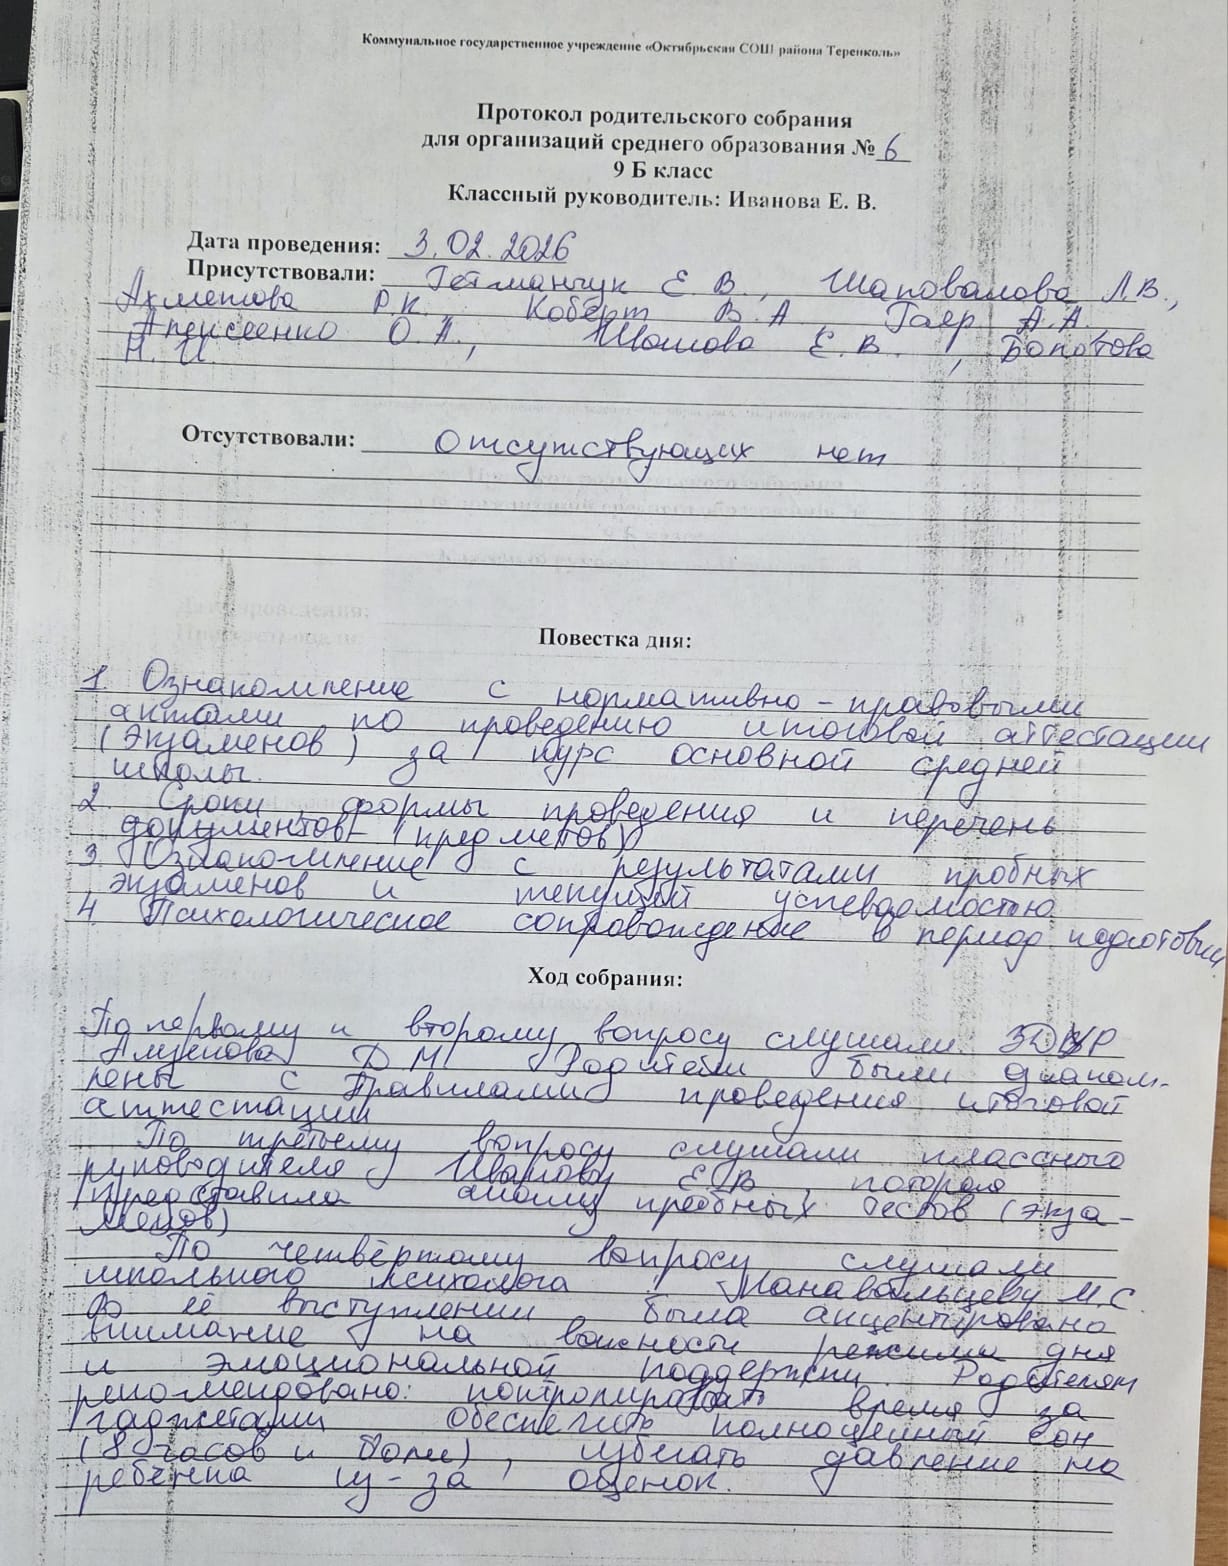 Коммунальное государственное учреждение «Октябрьская СОШ района Теренколь»
Протокол родительского собрания
для организаций среднего образования № 6
9 Б класс
Классный руководитель: Иванова Е. В.
Дата проведения: 3.02.2026
Присутствовали: Гетманчук Е В., Шаповалова Л.В.,
Ахметова Р.К. Коберт В.А Гаяр А.А.
Алексеенко О.А., Е.В., Болотова
Н.И.
Отсутствовали: Отсутствующих нет
Повестка дня:
1. Ознакомление с нормативно-правовыми
актами по проведению итоговой аттестации
(экзаменов) за курс основной средней
школы.
2. Сроки формы проведения и перечень
документов (предметов)
3. Ознакомление с результатами пробных
экзаменов и текущей успеваемостью
4 Психологическое сопровождение в период подготовки
Ход собрания:
По первому и второму вопросу слушали ЗДУР
Д М Родители были
с Правилами проведения итоговой
аттестации
По третьему вопросу слушали классного
руководителя Иванову Е.В, которая
представила анализ пробных тестов (экза-
менов)
По четвёртому вопросу слушали
школьного психолога М.С.
В её выступлении была акцентировано
внимание на важности режима дня
и эмоциональной поддержки. Родителям
рекомендовано: контролировать время за
гаджетами обеспечить полноценный сон
(8 часов и более), избегать давление на
ребёнка из-за оценок.